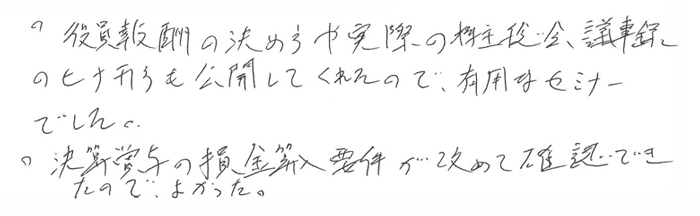 ○ 役員報酬の決め方や実際の株主総会、議事録
のヒナ形も公開してくれたので、有用なセミナー
でした。
○ 決算賞与の損金算入要件が改めて確認でき
たので、よかった。